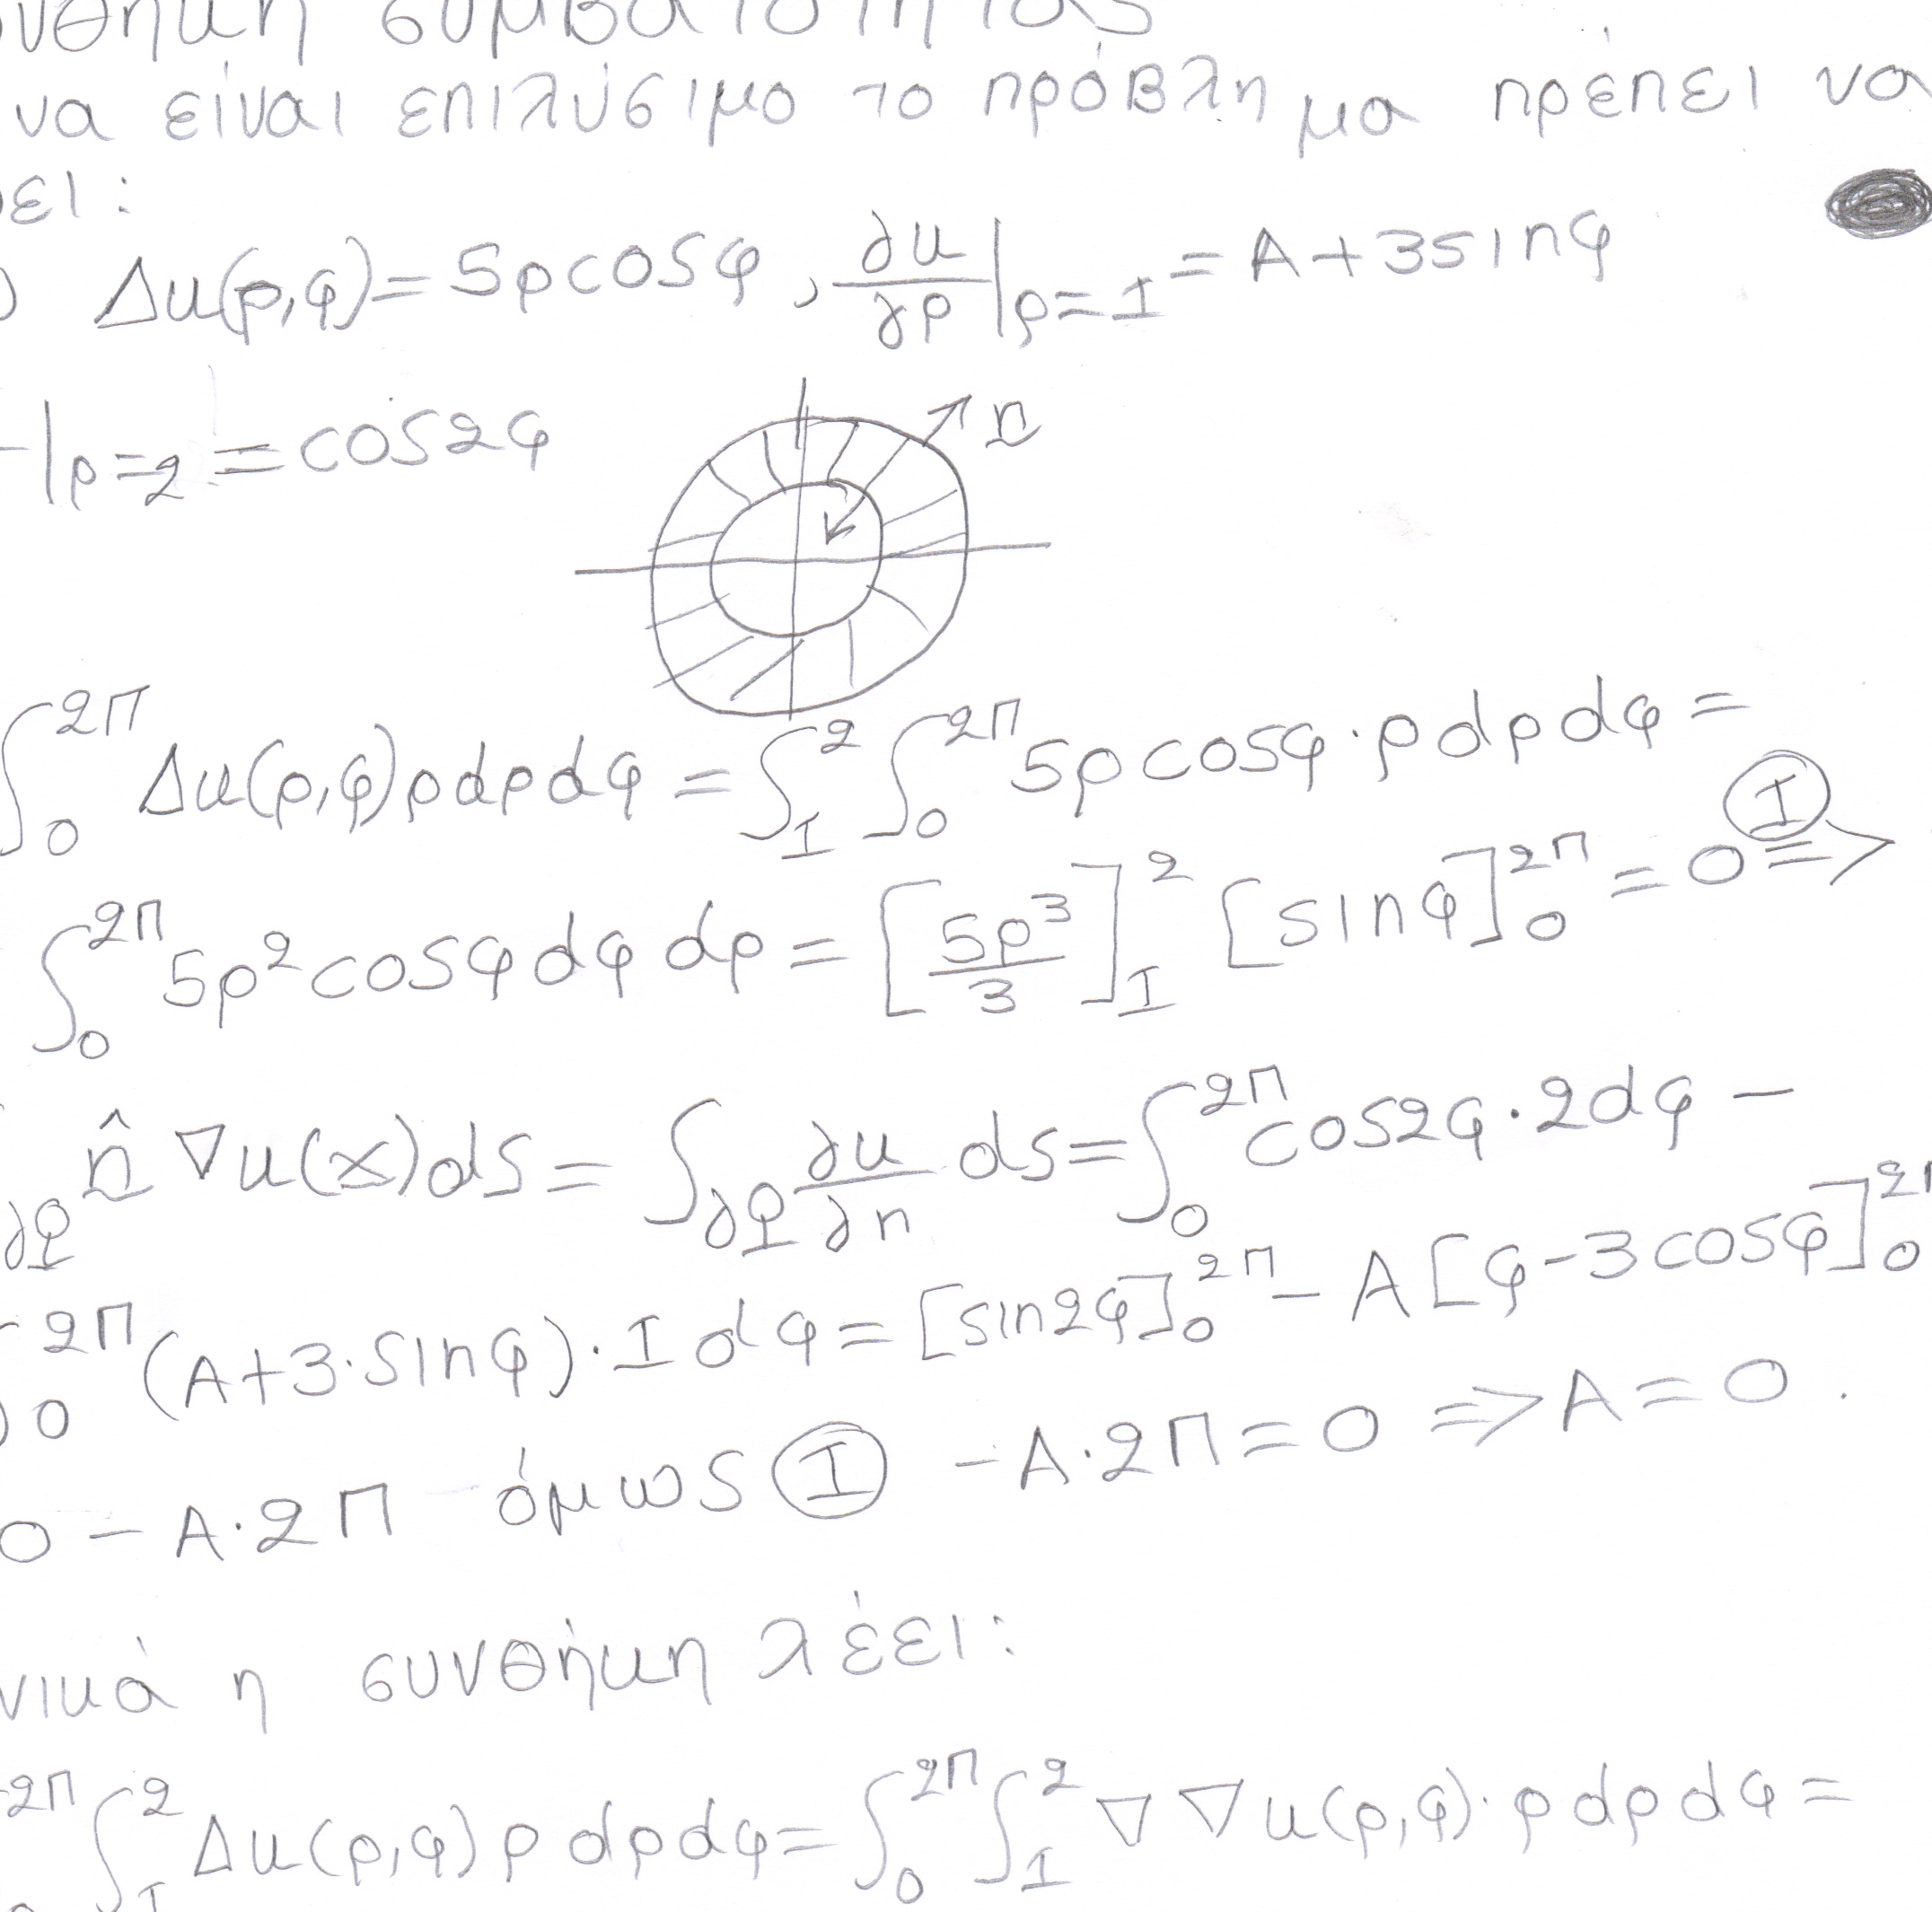 νθήκη συμβατότητας
να είναι επιλύσιμο το πρόβλημα πρέπει να
ει:
Δu(ρ,φ)=5ρcosφ, ∂u/∂ρ|ρ=1=A+3sinφ
|ρ=2=cos2φ
n
∫₀^2π Δu(ρ,φ)ρdρdφ=∫₁^2∫₀^2π 5ρcosφ·ρdρdφ=
∫₀^2π 5ρ²cosφdφdρ=[5ρ³/3]₁^2 [sinφ]₀^2π=0 Ⓘ =>
∂Ω n̂ ∇u(x)ds=∫∂Ω ∂u/∂n ds=∫₀^2π cos2φ·2dφ-
₀^2π (A+3·sinφ)·1dφ=[sin2φ]₀^2π-A[φ-3cosφ]₀^2π
0-A·2π όμως Ⓘ -A·2π=0=>A=0.
νικά η συνθήκη λέει:
2π ∫₁^2 Δu(ρ,φ)ρdρdφ=∫₀^2π∫₁^2 ∇∇u(ρ,φ)·ρdρdφ=